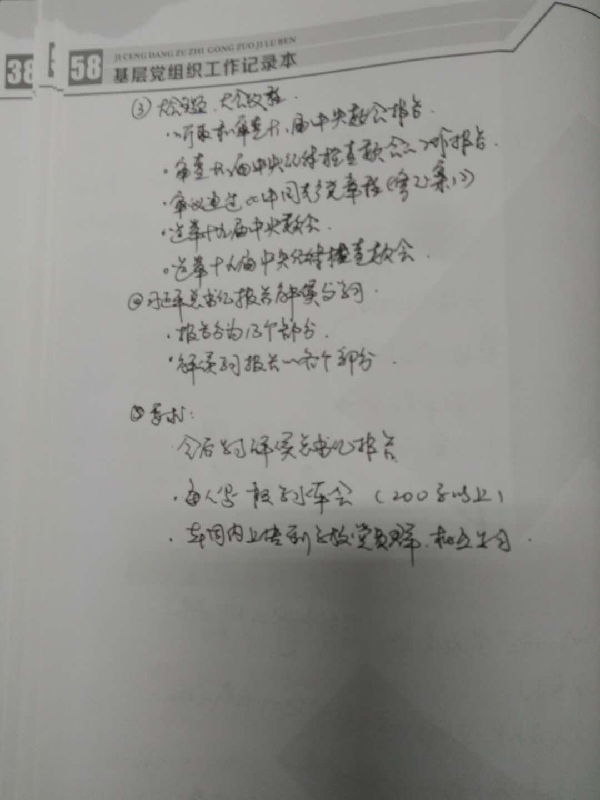 38 58 JI CENG DANG ZU ZHI GONG ZUO JI LU BEN
基层党组织工作记录本
③ 大会主题、大会议程.
· 听取和审查十八届中央委会报告.
· 审查十八届中央纪律检查委会工作报告.
· 审议通过《中国共产党章程(修正案)》
· 选举十九届中央委会.
· 选举十九届中央纪律检查委会.
④ 习近平总书记报告解读与学习.
· 报告分为13个部分.
· 解读学习报告 各个部分.
⑤ 要求:
会后学习 总书记报告
· 每人写一段学习体会 (200字以上)
· 本周内上传到 党员群.相互学习.